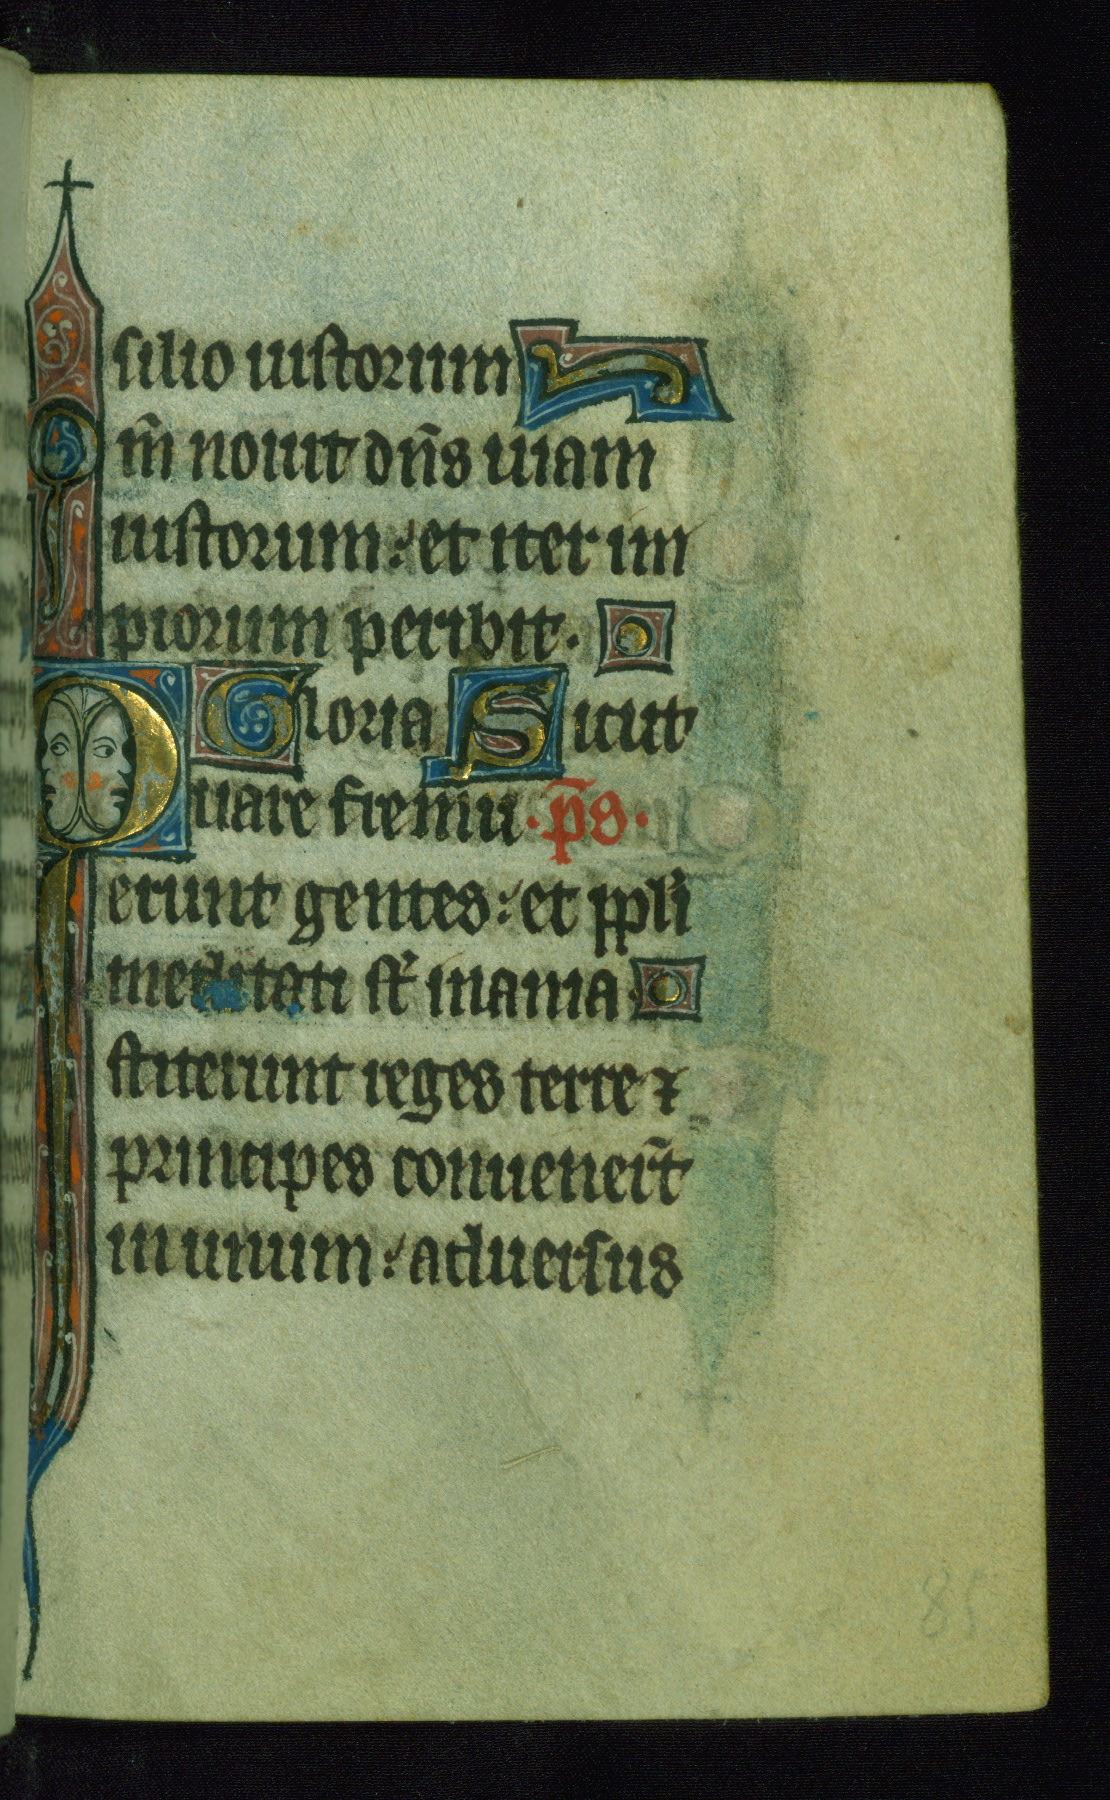 silio iustorum
m̄ nouit dn̄s uiam
iustorum: et iter im
piorum peribit.
Gloria Sicut
Quare fremu. p̄s.
erunt gentes: et ppl̄i
meditati st̄ inania.
stiterunt reges terre ⁊
principes conuener̄t
in unum: aduersus
85